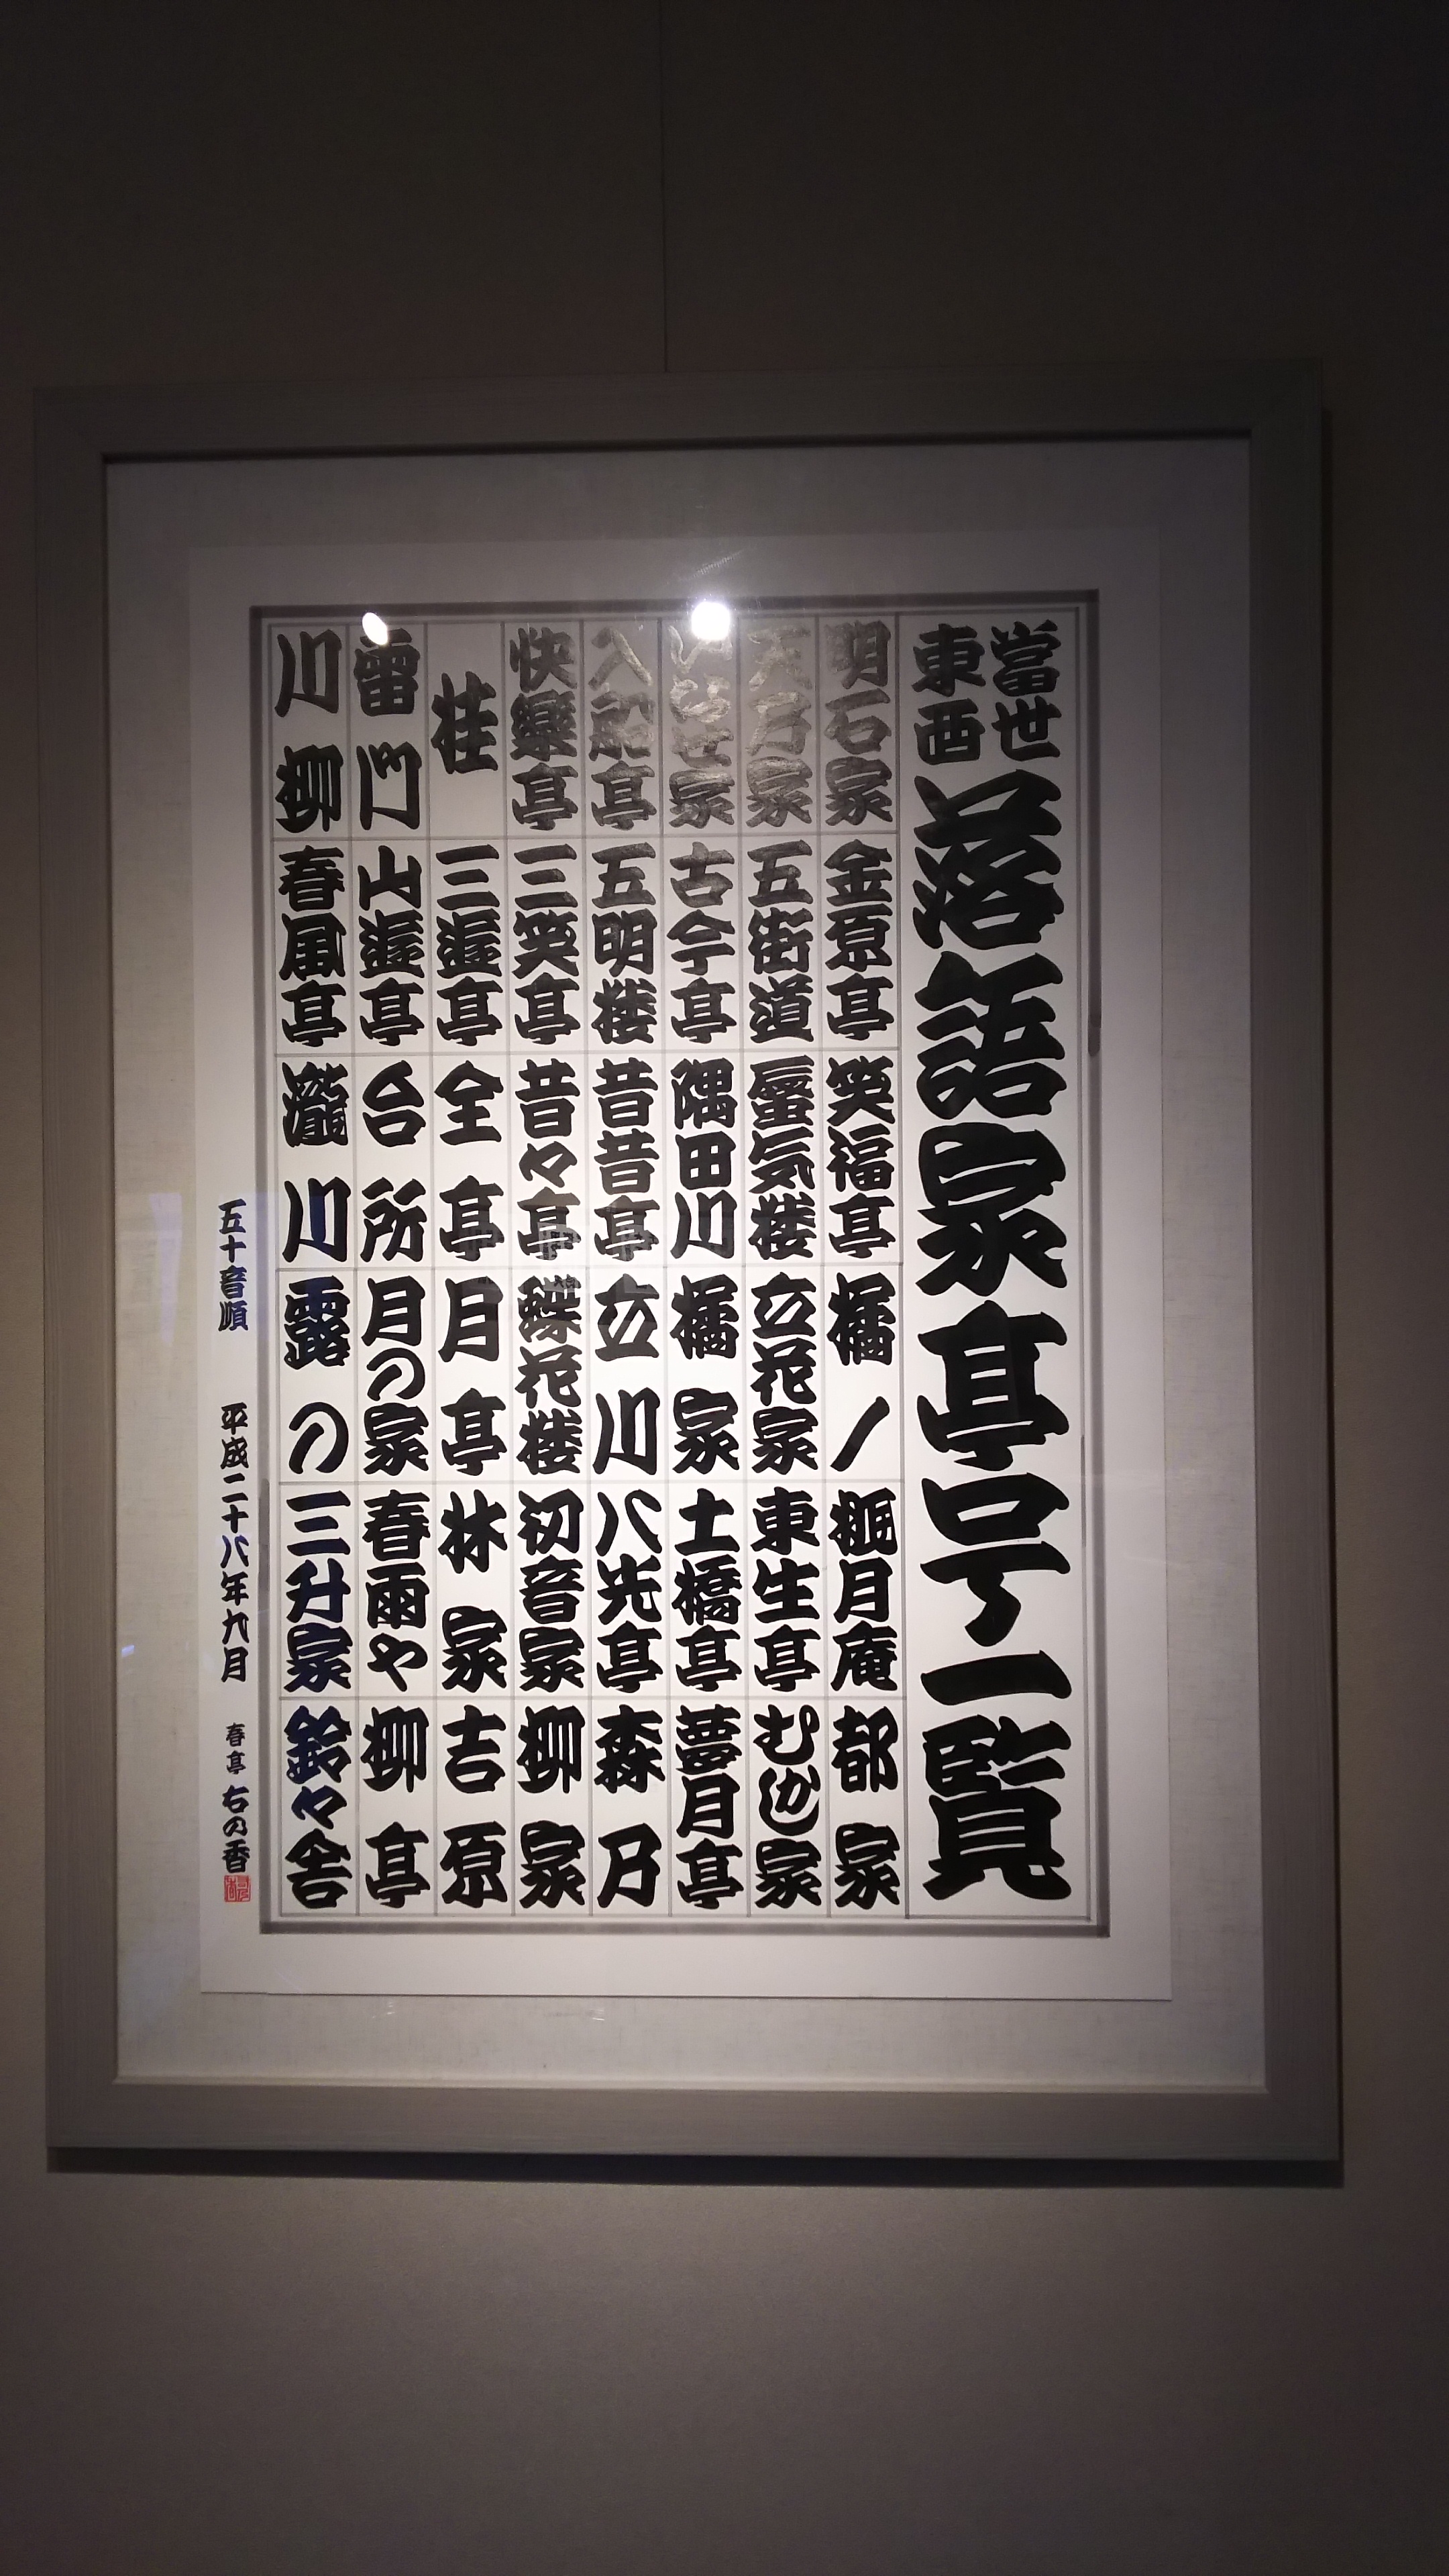 當世
東西
落語家亭号一覧
明石家
天乃家
いなせ家
入船亭
快樂亭
桂
雷門
川柳
金原亭
五街道
古今亭
五明楼
三笑亭
三遊亭
山遊亭
春風亭
笑福亭
蜃気楼
隅田川
昔昔亭
昔々亭
全亭
台所
瀧川
橘ノ
立花家
橘家
立川
蝶花楼
月亭
月の家
露の
桃月庵
東生亭
土橋亭
八光亭
初音家
林家
春雨や
三升家
都家
むかし家
夢月亭
森乃
柳家
吉原
柳亭
鈴々舎
五十音順 平成二十八年九月 春亭 右乃香